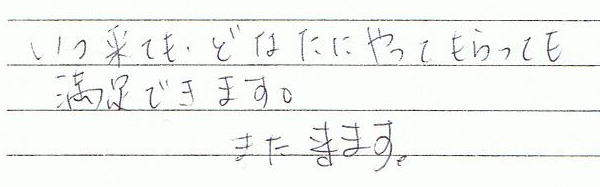 いつ来ても、どなたにやってもらっても
満足できます。
またきます。